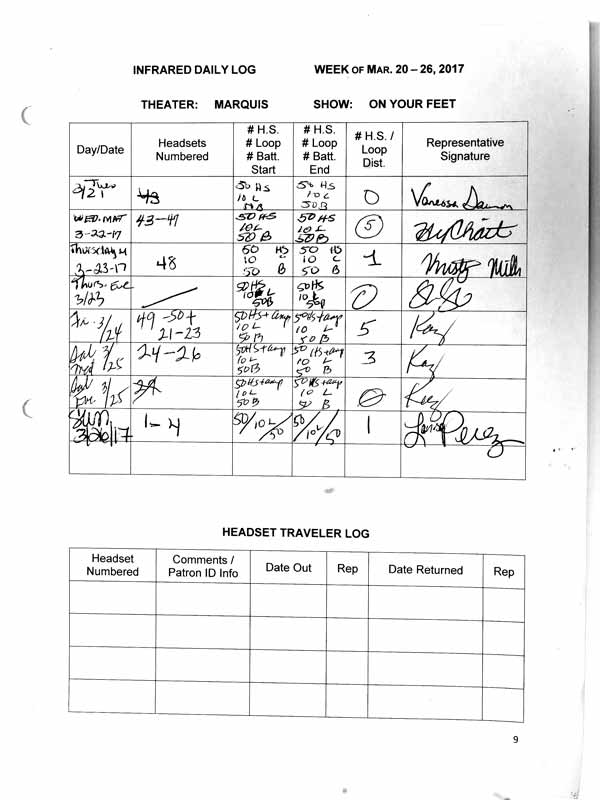 INFRARED DAILY LOG WEEK OF MAR. 20 – 26, 2017
THEATER: MARQUIS SHOW: ON YOUR FEET
Day/Date Headsets Numbered # H.S. # Loop # Batt. Start # H.S. # Loop # Batt. End # H.S. / Loop Dist. Representative Signature
Tues 3/21 43 50 HS 10 L 50 HS 10 L 50B 0 Vanessa
WED. MAT 3-22-17 43-47 50 HS 10 L 50 B 50 HS 10 L 50 B 5
Thursday M 3-23-17 48 50 HS 10 50 B 50 HS 10 L 50 B 1 Misty
Thurs. Eve 3/23 50HS 10 L 50B 50HS 10 L 50B 0
Fri. 3/24 49 -50+ 21-23 50HS+amp 10 L 50B 50HS+amp 10 L 50B 5 Kay
Sat Mat 3/25 24-26 50HS+amp 10 L 50B 50 HS+amp 10 L 50 B 3 Kay
Sat Eve. 3/25 50HS+amp 10 L 50B 50HS+amp 10 L 50 B 0 Kay
Sun 3/26/17 1-4 50/10L/50 50/10L/50 1 Perez
HEADSET TRAVELER LOG
Headset Numbered Comments / Patron ID Info Date Out Rep Date Returned Rep
9